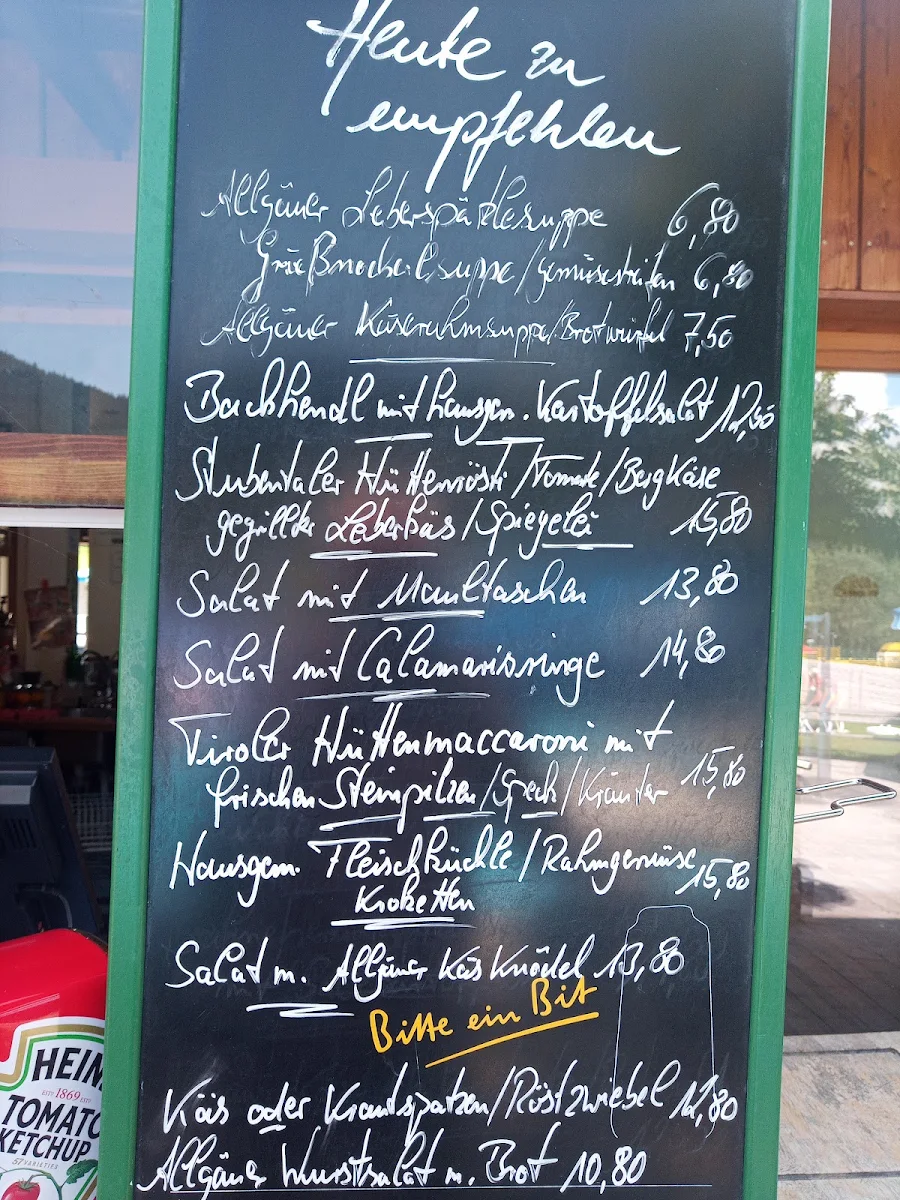 Heute zu
empfehlen
Allgäuer Leberspätzlesuppe 6,80
Grießnockerlsuppe/Gemüsestreifen 6,80
Allgäuer Käserahmsuppe/Brotwürfel 7,50
Backhendl mit hausgem. Kartoffelsalat
Stubentaler Hüttenrösti/Tomate/Bergkäse
gegrillter Leberkäs/Spiegelei 15,80
Salat mit Maultaschen 13,80
Salat mit Calamarisringe 14,80
Tiroler Hüttenmaccaroni mit
frischen Steinpilzen/Speck/Kräuter 15,80
Hausgem. Fleischküchle/Rahmgemüse 15,80
Kroketten
Salat m. Allgäuer Käsknödel 13,80
Bitte ein Bit
Käs oder Krautspatzen/Röstzwiebel
Allgäuer Wurstsalat m. Brot 10,80
HEIN
ESTD 1869
TOMATO
KETCHUP
57 VARIETIES